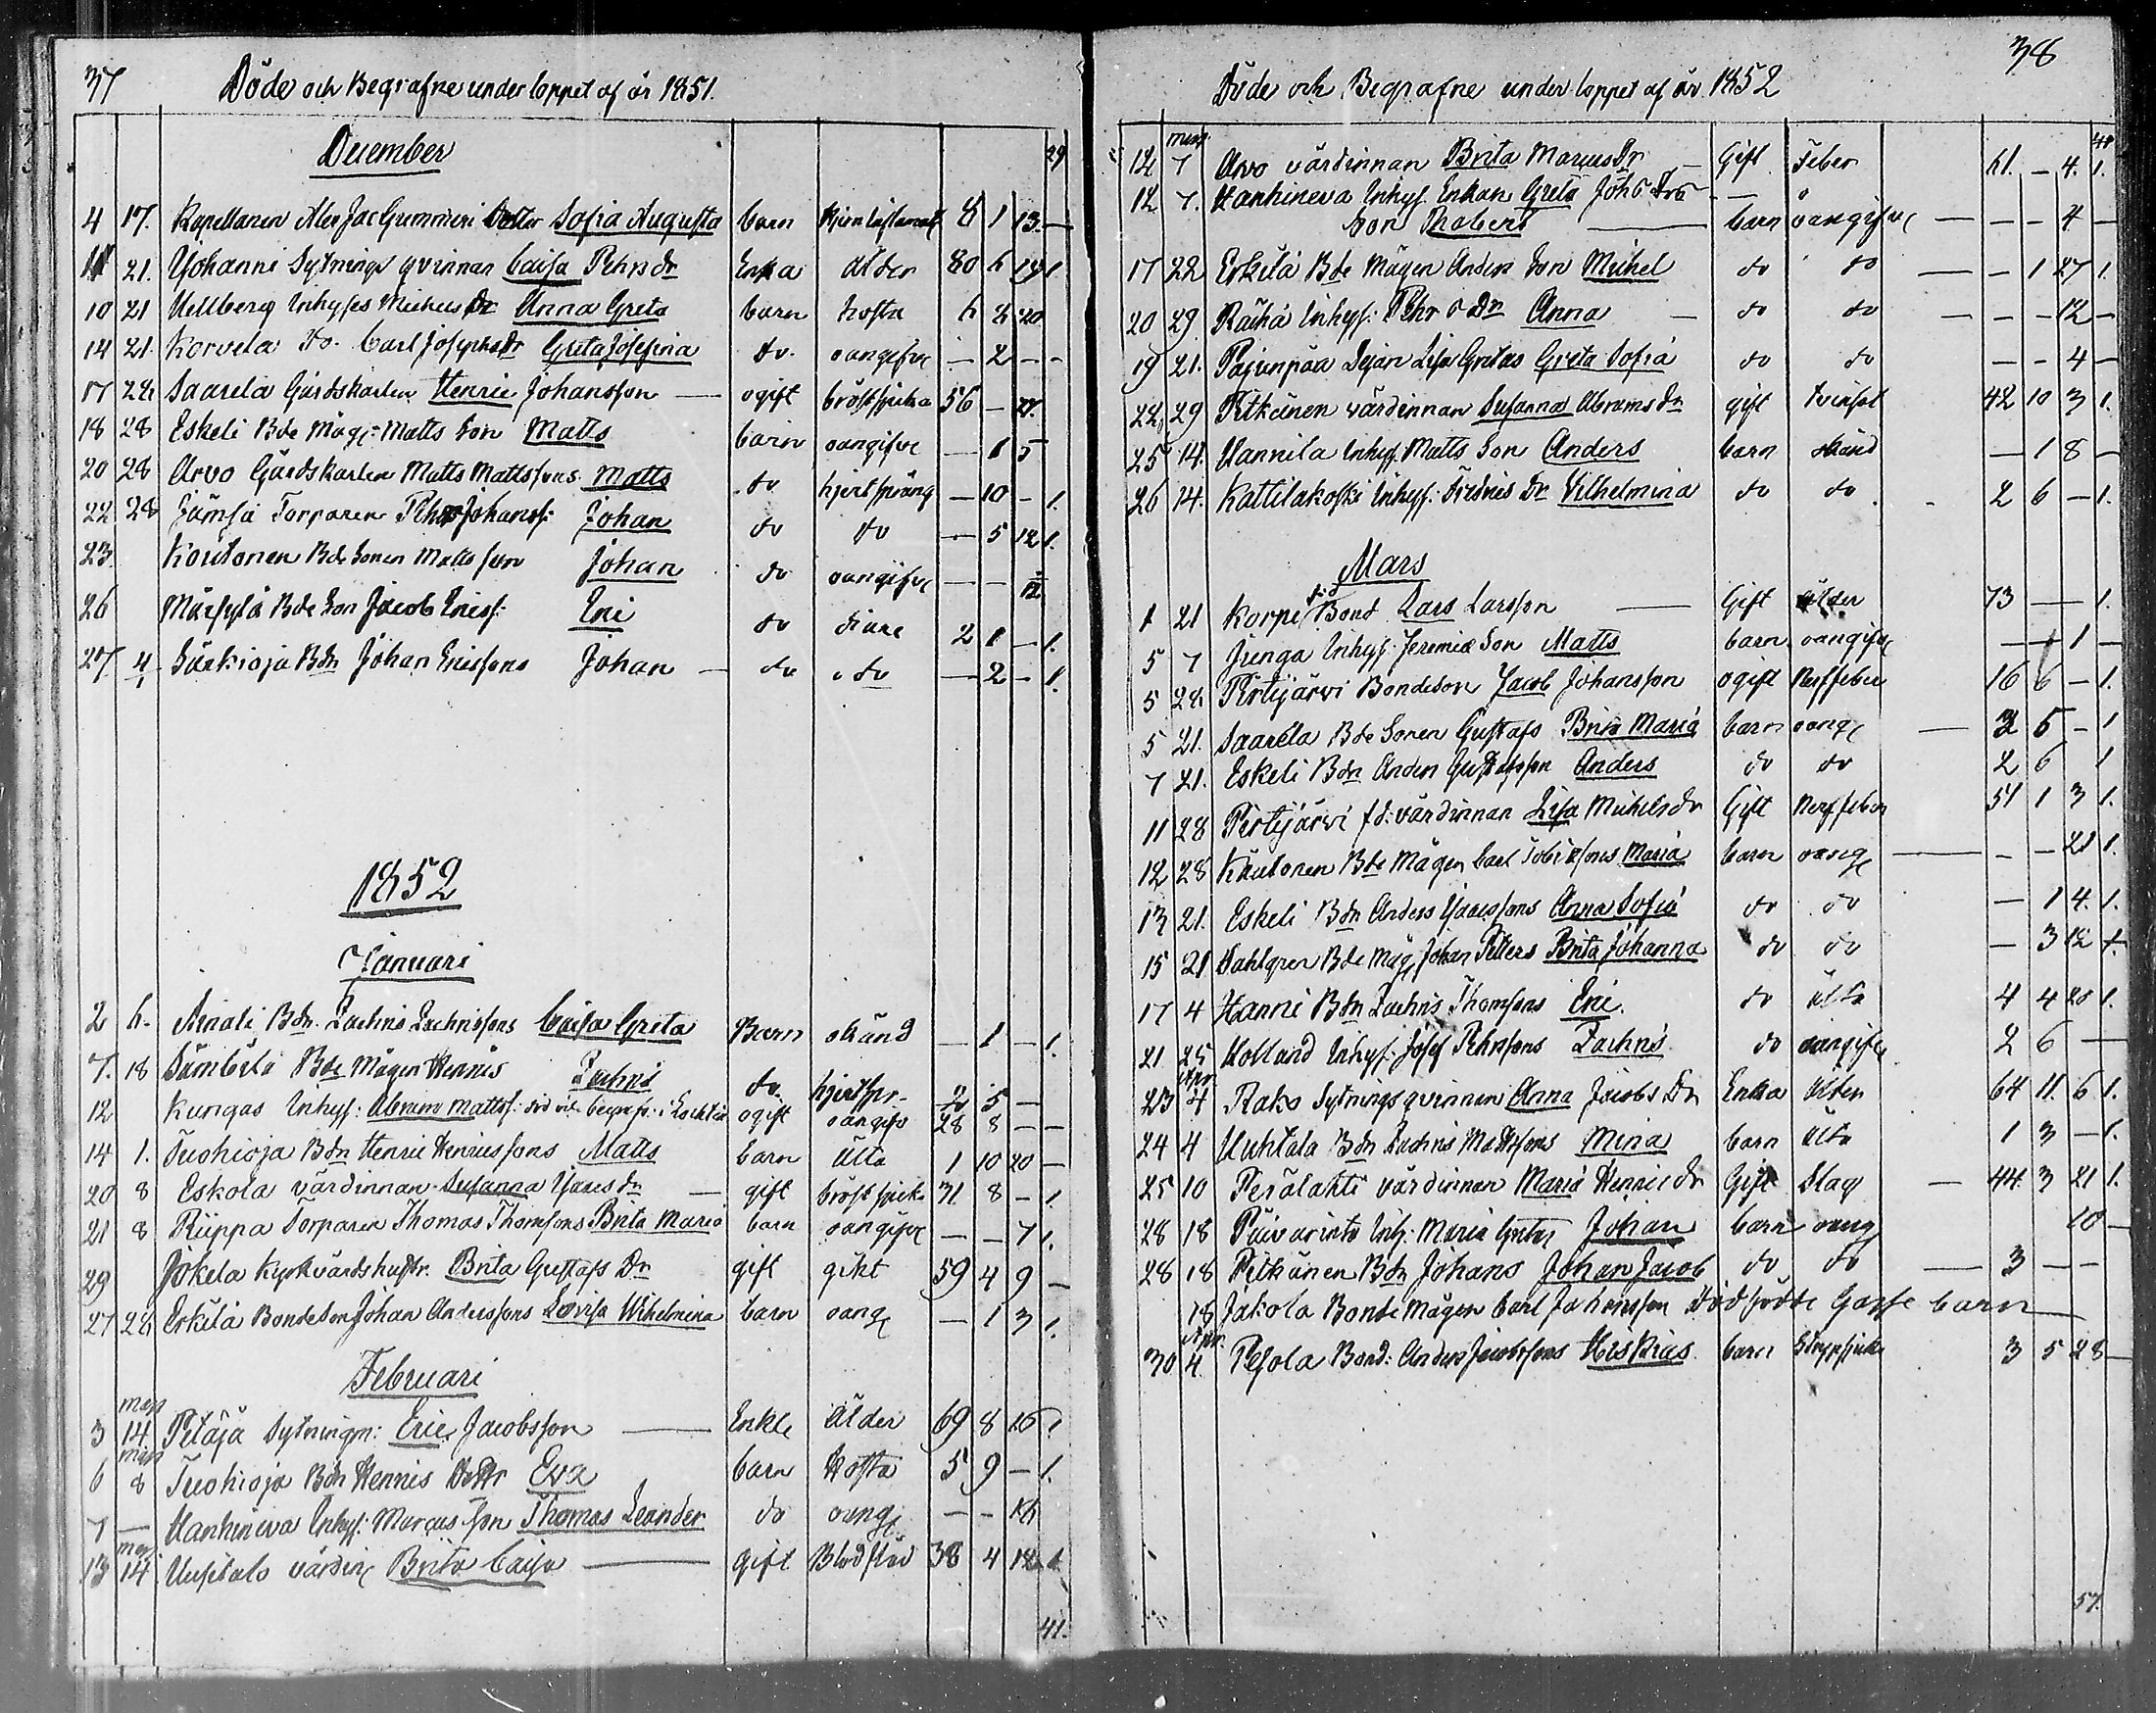 37
Döde och Begrafne under loppet af år 1851.
29
December
4 17. Kapellanen Alex Jac Gummeri Dotter Sofia Augusta barn 8 1 13. —
11 21. Yohanni Sytnings qvinnan Caisa Pehrs dr Enka ålder 80 6 19 1.
10 21 Hellberg Inhyses Michels Dr Anna Greta barn hosta 6 2 20
14 21. Korvela do. Carl Josephs Dr Greta Josefina do. oangifve — 2 — -
17 28 Saarela Gårdskarlen Henric Johansson — ogift bröstsjuka 56 — 27.
18 28 Eskeli Bde Måg: Matts Son Matts barn oangifve — 1 5
20 28 Arvo Gårdskarlen Matts Mattssons Matts do hjertspräng — 10 - 1.
22 28 Jämsä Torparen Pehr Johanss: Johan do do — 5 12 1.
23 Koutonen Bde Sonen Matts son Johan do oangifve — — 1/12
26 Märsylä Bde Son Jacob Ericss: Eric do diare 2 1 — 1.
27. 4/1 Särkioja Bdn Johan Ericssons Johan — do do — 2 — 1.
1852
Januari
2 6. Ainali Bdn. Zachris Zachrissons Caisa Greta Barn okänd — 1 — 1.
7. 18 Sämbylä Bde Mågen Hennis Zachris do. hjertspr. 2 5 —
12 Kungas Inhys: Abram Mattss: död och begrafv: i Lochteå ogift oangifv 28 8 — —
14 1. Tuohioja Bdn Henric Henricssons Matts barn Älta 1 10 20 —
20 8 Eskola värdinnan Susanna Yaacs dr — gift bröstsjuka 31 8 — 1.
21 8 Riippa Torparen Thomas Thomsons Brita Maria barn oangifve — — 7 1.
29 Jokela Kyrkvärdshustr. Brita Gustafs Dr gift gikt 59 4 9 —
27 28 Erkilä Bondeson Johan Anderssons Lovisa Wilhelmina barn oang — 1 3 1.
Februari
mars
3 14 Petäjä Sytningm: Eric Jacobsson — Enkl. Ålder 69 8 16 1
mars
6 8 Tuohioja Bdn Hennis Dottr Eva barn Hosta 5 9 — 1.
7 — Hanhineva Inhys: Marcus Son Thomas Leander do oang — - 16
mars
13 14 Uusitalo värdin Brita Caisa — gift Blodstöd 38 4 12 1
41.
38
Döde och Begrafne under loppet af år 1852
41
mars
12 7 Arvo värdinnan Brita Marcus Dr — Gift Feber 61 — 4. 1.
12 7. Hanhineva Inhys. Enkan Greta Johs Drs —
son Thobert — barn oangifve — — — 4 —
17 22 Erkilä Bde Mågen Anders Son Michel do do — - 1 27 1.
20 29 Räihä Inhys: Pehrs Dr Anna — do do — - - 12 —
19 21. Pajunpää Dejan Lisa Gretas Greta Sofia do do — - 4 —
22 29 Pitkänen värdinnan Susanna Abrams Dr gift tvinsot 42 10 3 1.
25 14. Hannila Inhys. Matts Son Anders barn okänd — 1 8 —
26 14. Kattilakoski Inhys: Fredrics Dr Vilhelmina do do - 2 6 — 1.
Mars
1 21 Korpi fd Bond Lars Larsson — Gift ålder 73 — 1.
5 7 Junga Inhys: Jeremiæ Son Matts barn oangifve — 1 —
5 28 Pertijärvi Bondeson Jacob Johansson ogift Nerffeber 16 6 — 1.
5 21. Saarela Bde Sonen Gustafs Brita Maria barn oang — 2 5 — 1
7 21. Eskeli Bdn Anders Gustafsson Anders do do 2 6 1
11 28 Pertijärvi fd: värdinnan Lisa Michels dr Gift Nerffeber 51 1 3 1.
12 28 Koutonen Bde Mågen Carl Tobiæsons Maria barn oang — - - 21 1.
13 21. Eskeli Bdn Anders Yaacssons Anna Sofia do do — 1 4. 1.
15 21 Dahlgren Bde Måg Johan Petters Brita Johanna do do — 3 12 1.
17 4 Hanni Bdn Zachris Thomsons Eric. do Älta 4 4 20 1.
21 25 Holland Inhys: Josef Pehrssons Zachris do oangifve 2 6 —
Apr
23 4 Rako Sytnings qvinnan Anna Jacobs Dr Enka Ålder 64 11. 6 1.
24 4 Huhtala Bdn Zachris Mattssons Mina barn Älta 1 3 — 1.
25 10 Perälahti värdinnan Maria Henrics dr Gift Slag — 44 3 21 1.
28 18 Päivärinta Inh: Maria Gretas Johan barn oang 10 —
28 18 Pitkänen Bdn Johans Johan Jacob do do — 3 — —
18 Jäkola Bonde mågen Carl Johansson dödfödde Gosse barn —
Apr.
30 4. Pesola Bond: Anders Jacobssons Hiskias barn Strypsjuka 3 5 28 —
57.